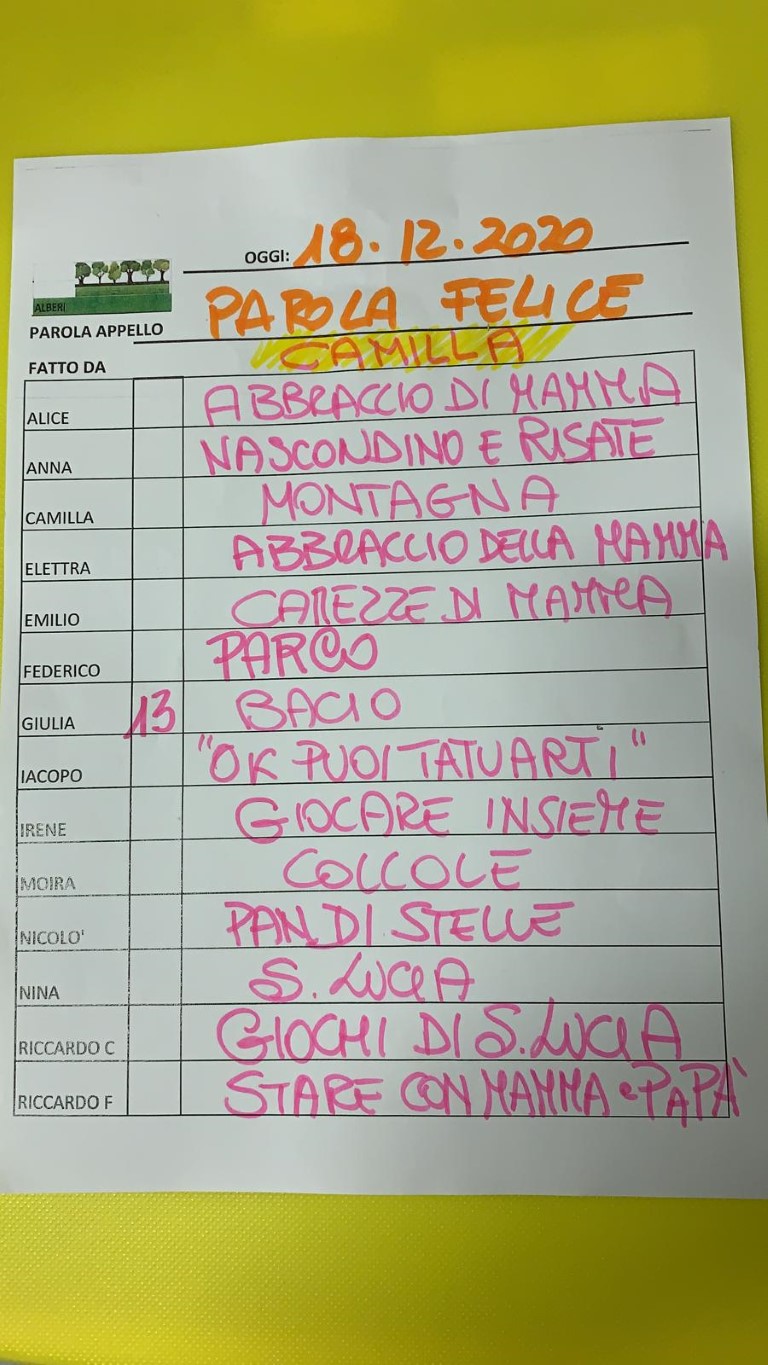 OGGI: 18.12.2020
ALBERI
PAROLA APPELLO PAROLA FELICE
FATTO DA CAMILLA
ALICE ABBRACCIO DI MAMMA
ANNA NASCONDINO E RISATE
CAMILLA MONTAGNA
ELETTRA ABBRACCIO DELLA MAMMA
EMILIO CAREZZE DI MAMMA
FEDERICO PARCO
GIULIA 13 BACIO
IACOPO "OK PUOI TATUARTI"
IRENE GIOCARE INSIEME
MOIRA COCCOLE
NICOLO' PAN DI STELLE
NINA S. LUCIA
RICCARDO C GIOCHI DI S. LUCIA
RICCARDO F STARE CON MAMMA e PAPÀ